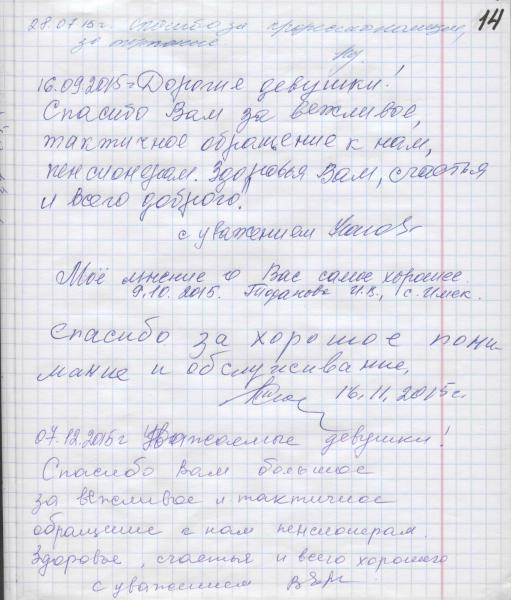 14
28.07.15г. Спасибо за профессионализм,
за терпение
16.09.2015г Дорогие девушки!
Спасибо Вам за вежливое,
тактичное обращение к нам,
пенсионерам. Здоровья Вам, счастья
и всего доброго!
с уважением
Моё мнение о Вас самое хорошее.
9.10.2015. И.В., с.
Спасибо за хорошое пони
мание и обслуживание,
16.11.2015г.
07.12.2015г Уважаемые девушки!
Спасибо Вам большое
за вежливое и тактичное
обращение к нам пенсионерам.
Здоровье, счастья и всего хорошего
с уважением